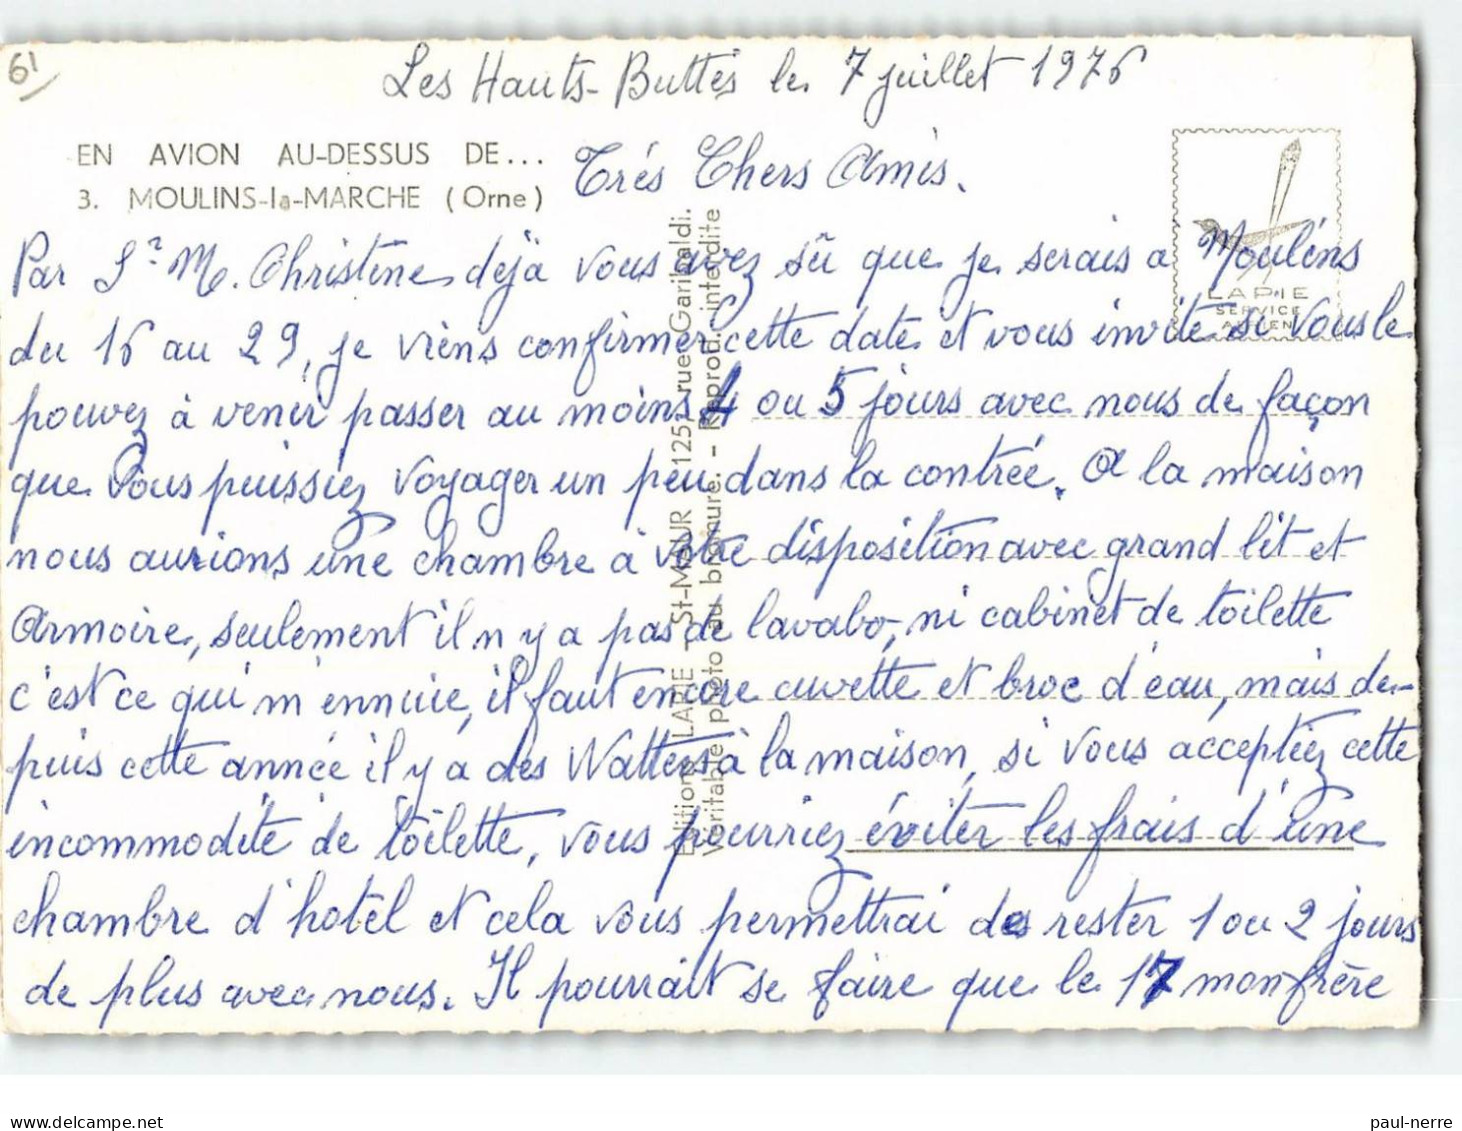 61
Les Hauts-Buttés le 7 juillet 1976
EN AVION AU-DESSUS DE...
3. MOULINS-la-MARCHE (Orne)
Trés Chers Amis.
Par Sr M. Christine déja vous avez sû que je serais a Moulins
du 16 au 29, je viens confirmer cette date et vous invite si vous le
pouvez à venir passer au moins 4 ou 5 jours avec nous de façon
que vous puissiez voyager un peu dans la contrée. A la maison
nous aurions une chambre à votre disposition avec grand lit et
Armoire, seulement il n y a pas de lavabo, ni cabinet de toilette
c'est ce qui m'ennuie, il faut encore cuvette et broc d'eau, mais de-
puis cette année il y a des Watters à la maison, si vous acceptiez cette
incommodité de toilette, vous pourriez éviter les frais d'une
chambre d'hotel et cela vous permettrai de rester 1 ou 2 jours
de plus avec nous. Il pourrait se faire que le 17 mon frère
Editions LAPIE - St-MAUR 125, rue Garibaldi.
Véritable photo au bromure. - Reprod. interdite
LAPIE
SERVICE
AERIEN
paul-nerre